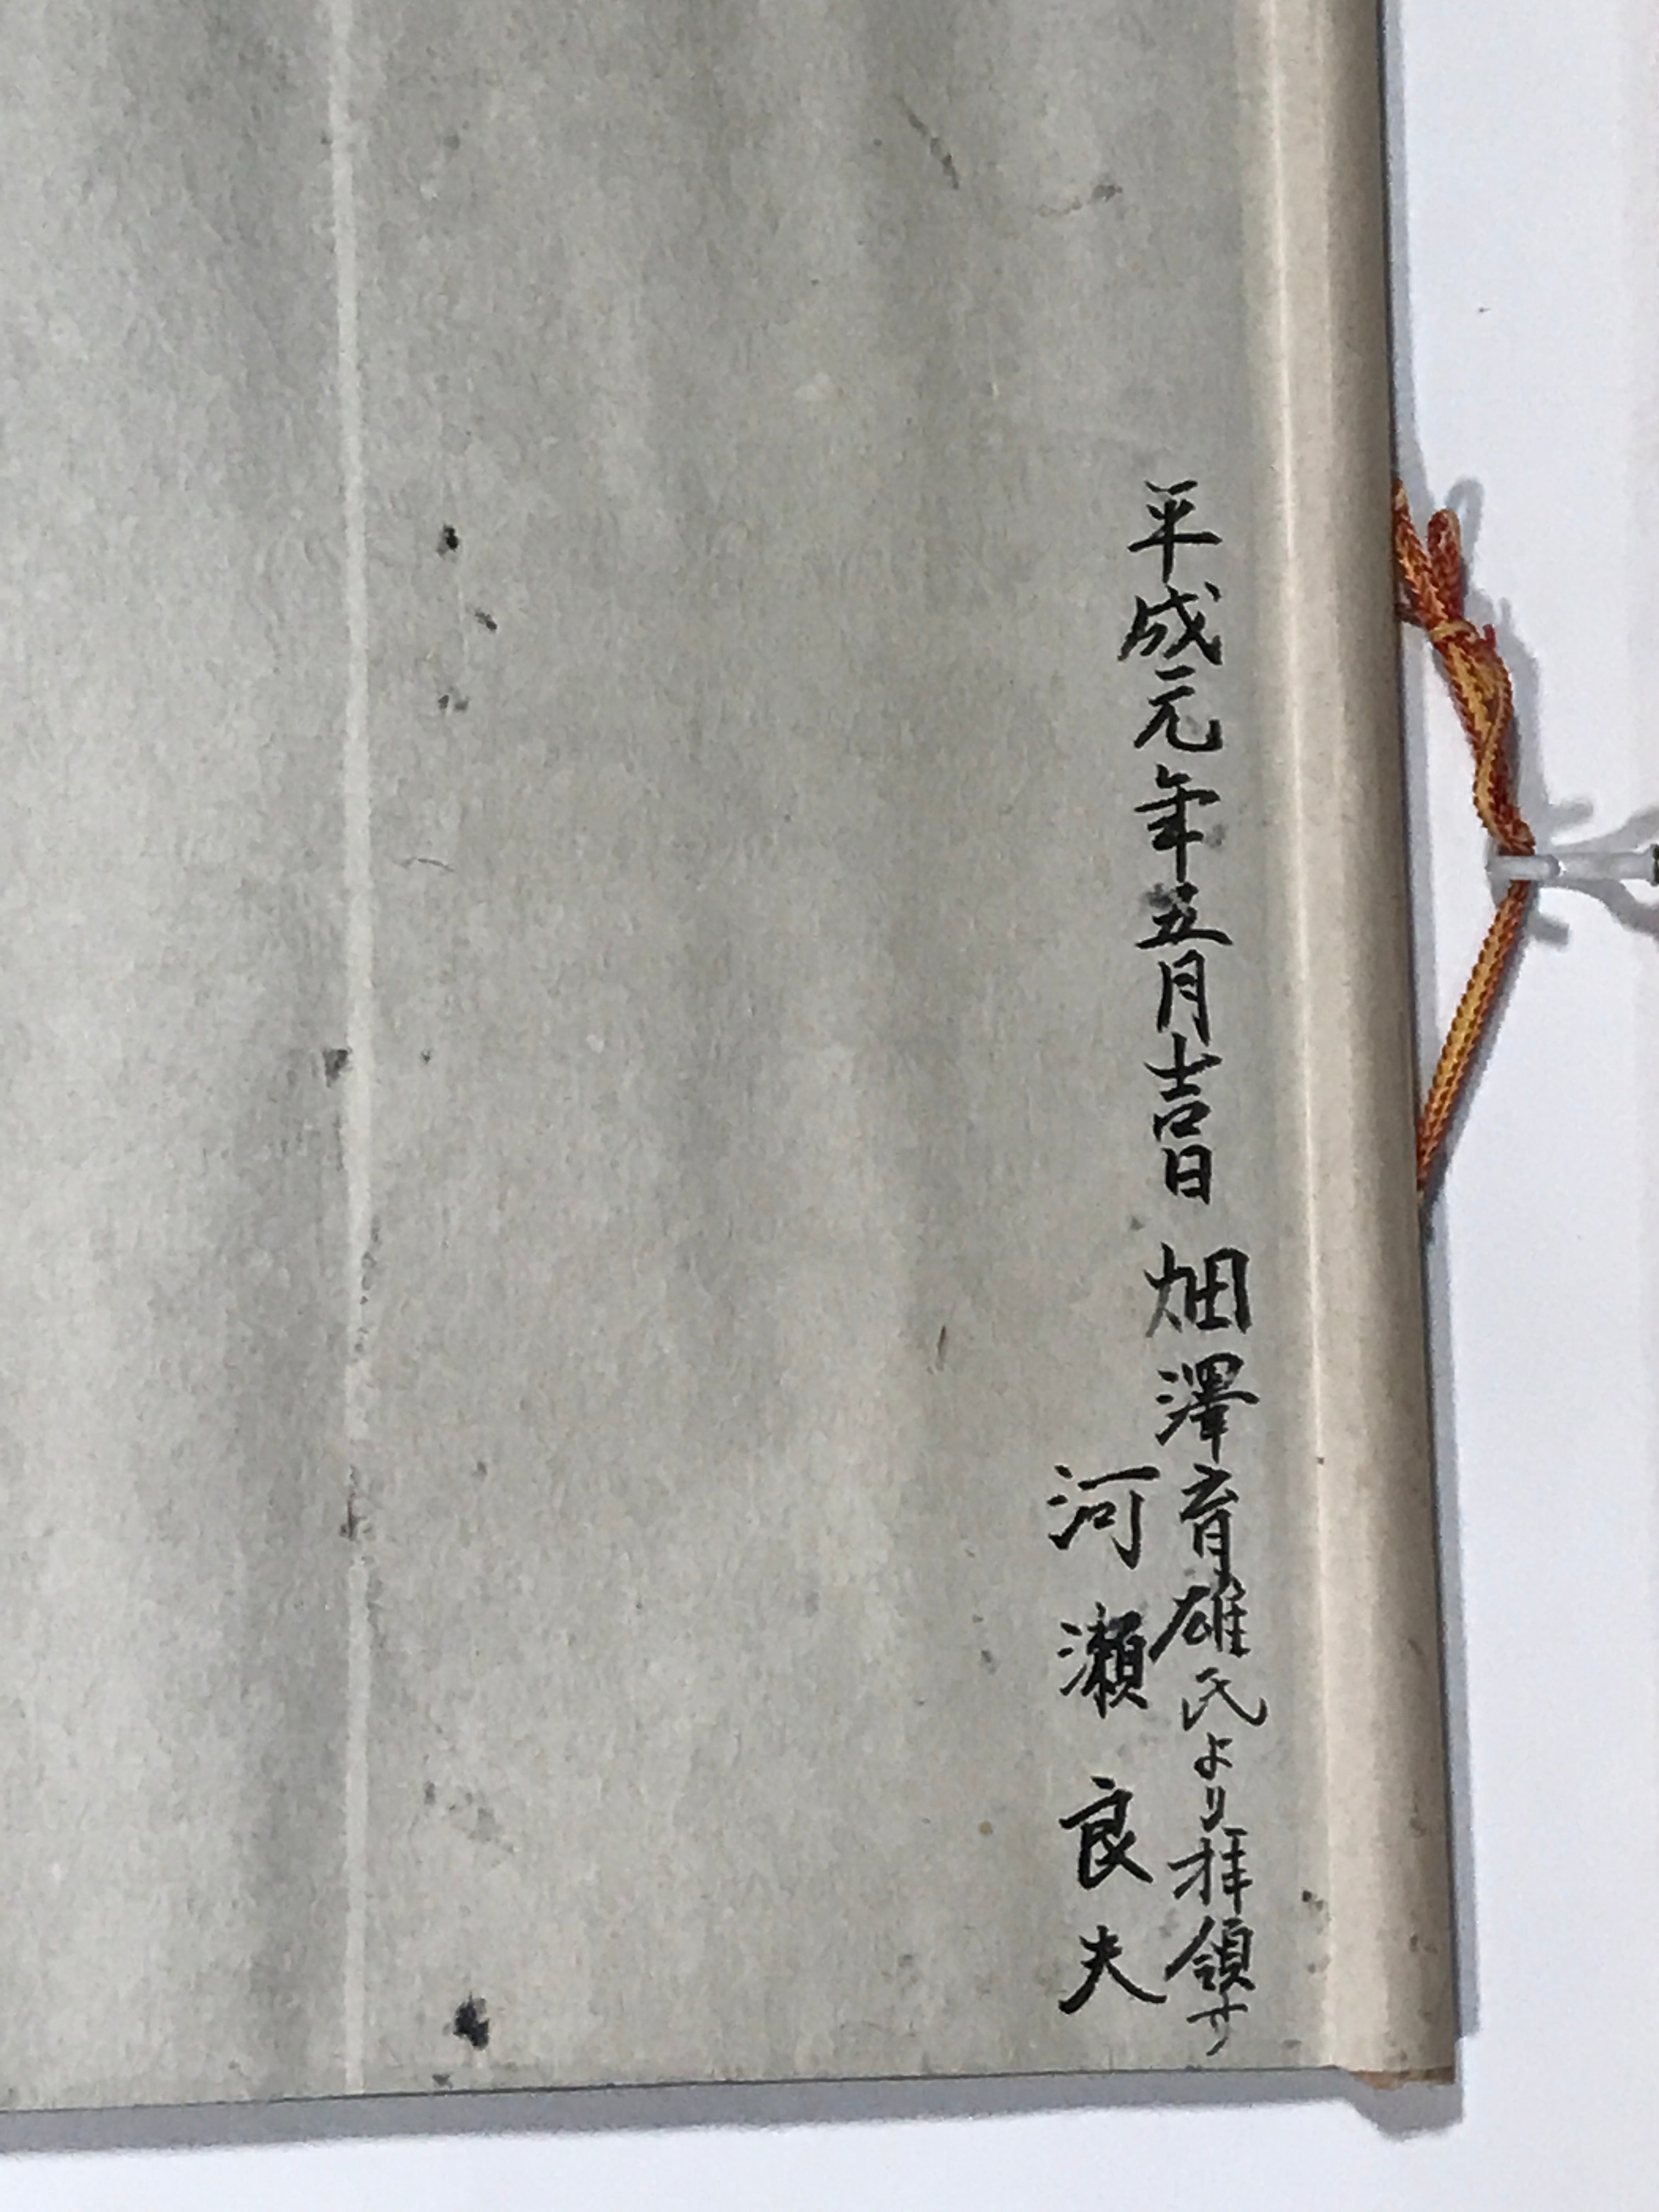 平成元年五月吉日 畑澤育雄氏より拝領す
河瀬良夫